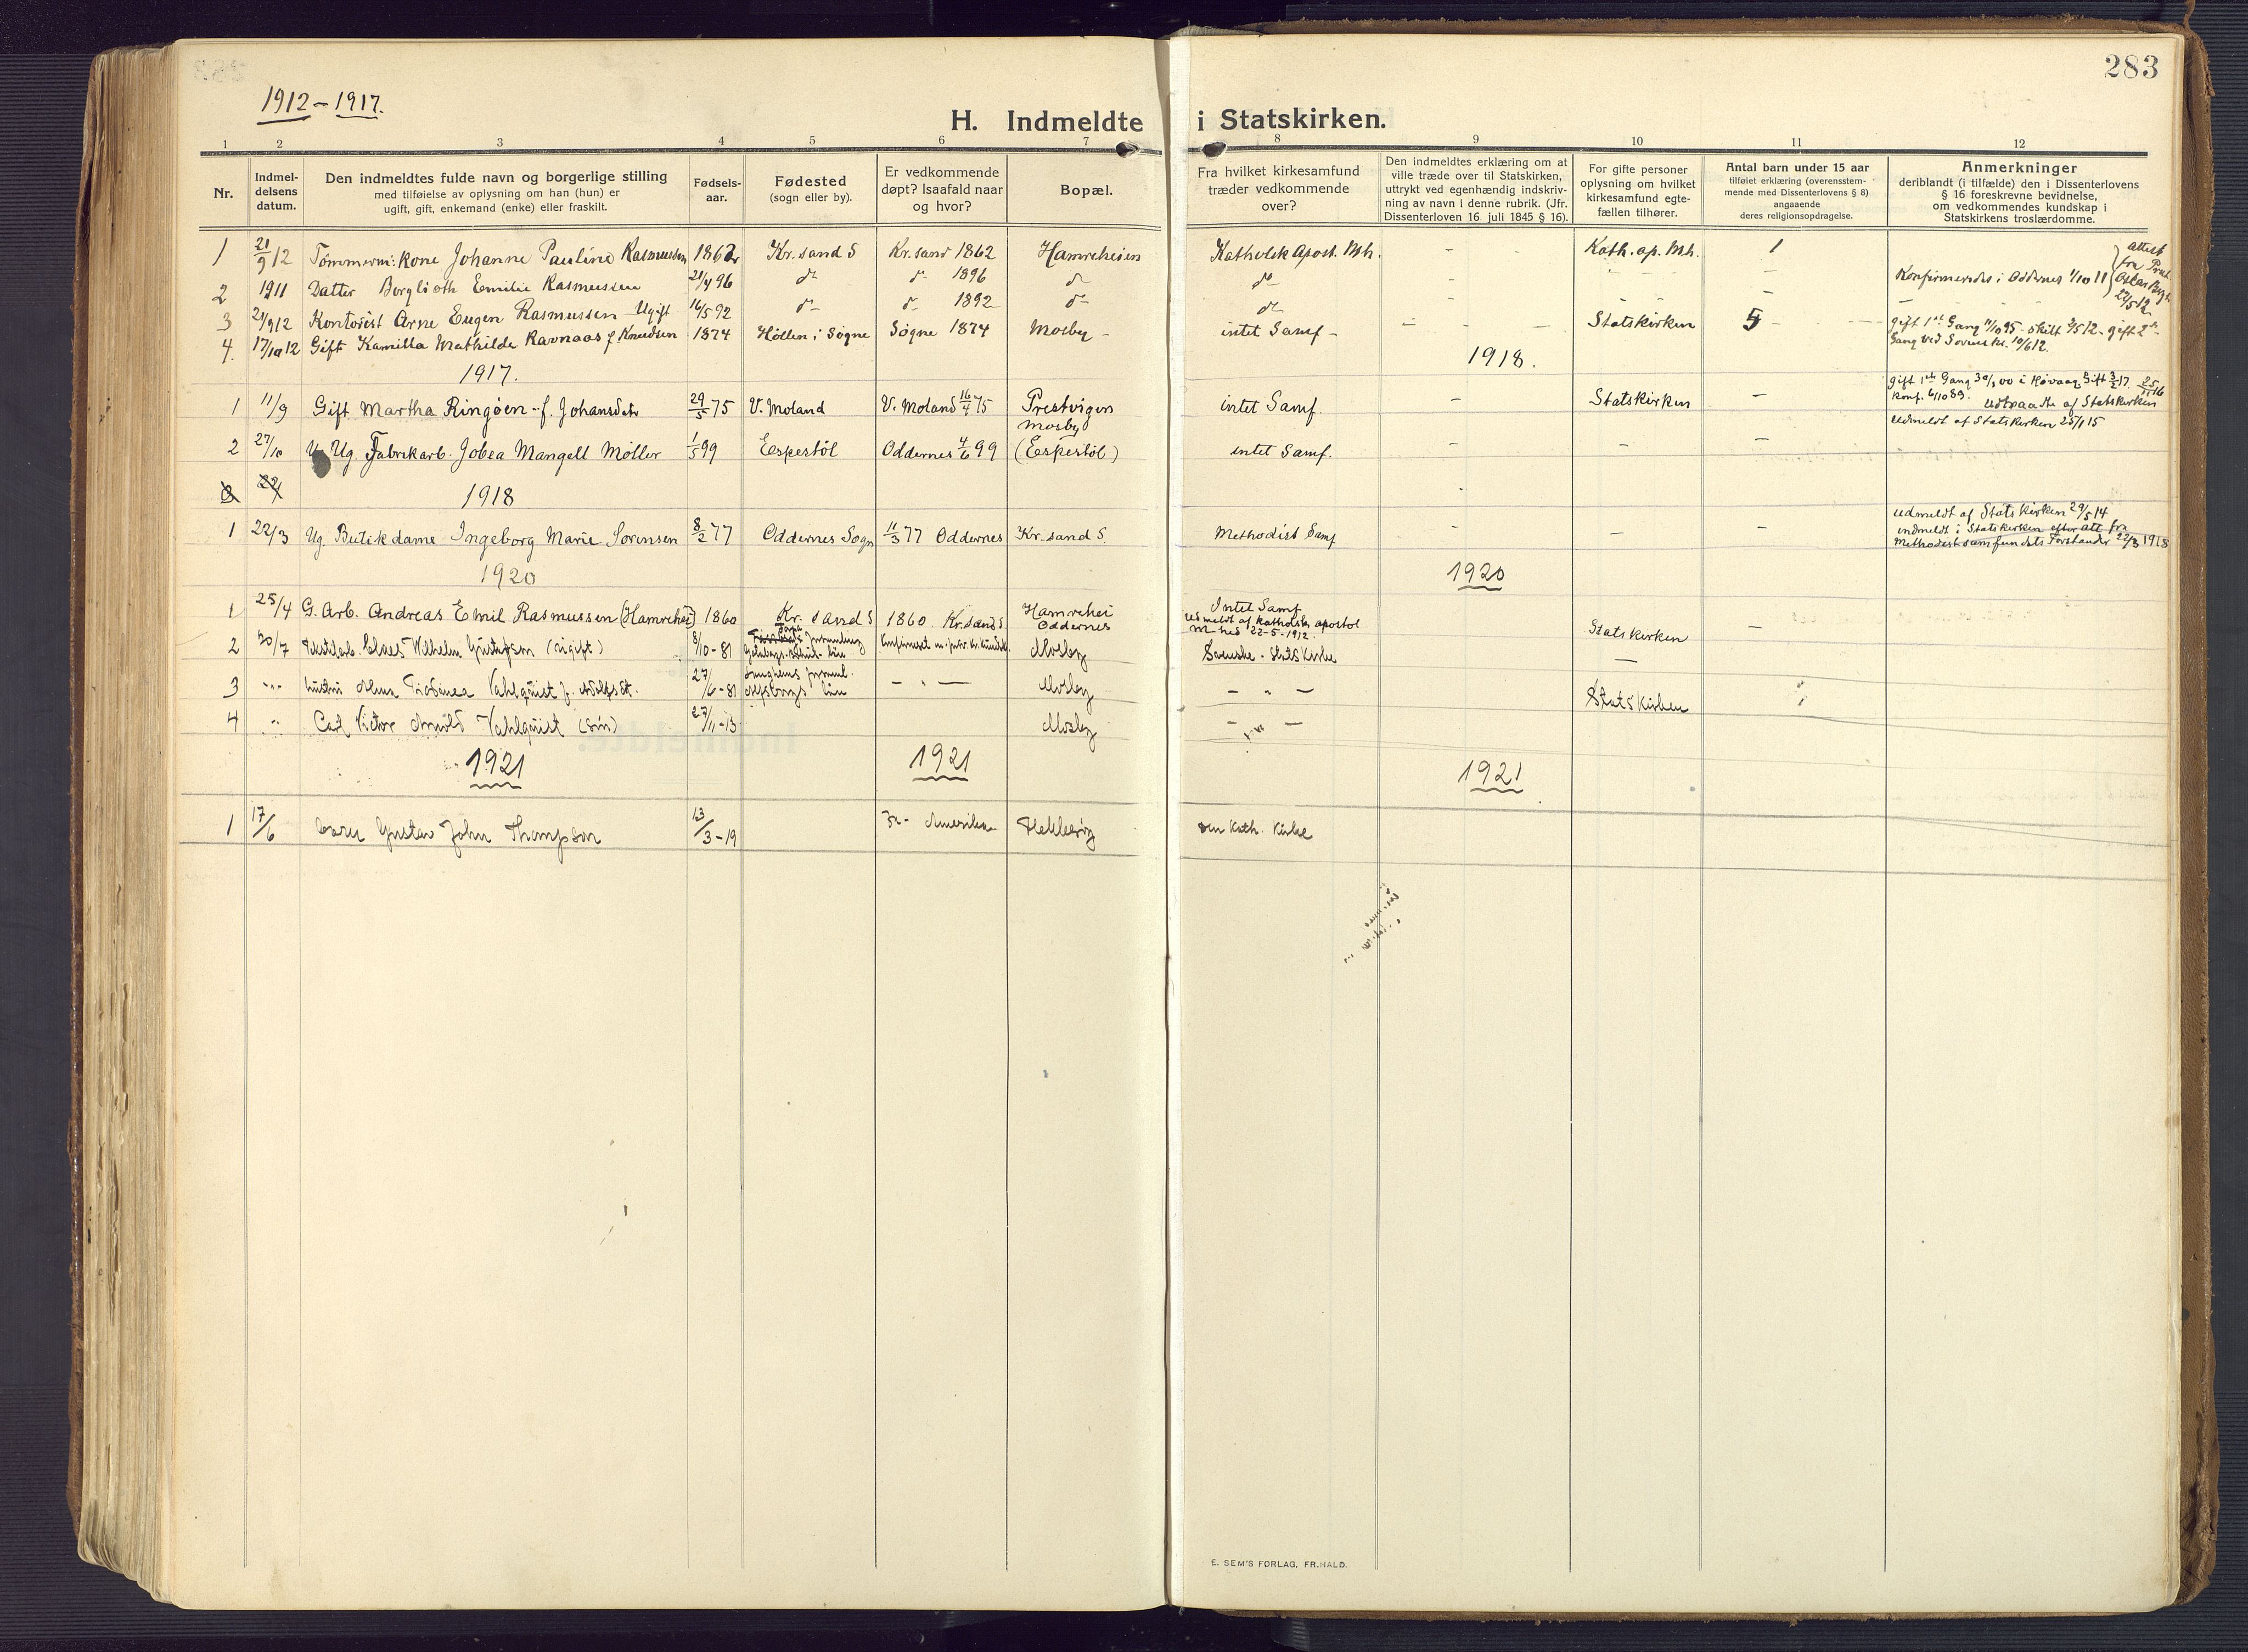 283
1912 - 1917.
H. Indmeldte i Statskirken.
1 2 3 4 5 6 7 8 9 10 11 12
Nr.
Indmel-
delsens
datum.
Den indmeldtes fulde navn og borgerlige stilling
med tilføielse av oplysning om han (hun) er
ugift, gift, enkemand (enke) eller fraskilt.
Fødsels-
aar.
Fødested
(sogn eller by).
Er vedkommende
døpt? Isaafald naar
og hvor?
Bopæl.
Fra hvilket kirkesamfund
træder vedkommende
over?
Den indmeldtes erklæring om at
ville træde over til Statskirken,
uttrykt ved egenhændig indskriv-
ning av navn i denne rubrik. (Jfr.
Dissenterloven 16. juli 1845 § 16).
For gifte personer
oplysning om hvilket
kirkesamfund egte-
fællen tilhører.
Antal barn under 15 aar
tilføiet erklæring (overensstem-
mende med Dissenterlovens § 8)
angaaende
deres religionsopdragelse.
Anmerkninger
deriblandt (i tilfælde) den i Dissenterlovens
§ 16 foreskrevne bevidnelse,
om vedkommendes kundskap i
Statskirkens troslærdomme.
1 21/9 12 Tømmerm: kone Johanne Pauline Rasmussen 1862 Kr.sand S Kr.sand 1862 Hamreheien Katholsk Apost. Mh. - - Kath. ap. Mh. 1
2 1911 Datter Borglioth Emilie Rasmussen 21/4 96 do do 1896 do do - - Konfirmeredes i Oddernes 1/10 11
attest
fra Præst
27/5 12
3 21/9 12 Kontorist Arne Eugen Rasmussen - Ugift 16/5 92 do do 1892 do do -
4. 17/10 12 Gift Kamilla Mathilde Ravnaas f Knudsen 1874 Høllen i Søgne Søgne 1874 Mosby - intet Samf - - - Statskirken 5 - gift 1ste Gang 11/10 95 - skilt 9/5 12 - gift 2den
Gang ved 10/6 12.
1917. 1918.
1 11/9 Gift Martha Ringøen - f. Johansdatr 29/5 75 V. Moland V. Moland 16/4 75 Prestvigen
Mosby intet Samf. - Statskirken - gift 1ste Gang 30/1 00 i Høvaag Gift 3/2 17.
Konf. 6/10 89. Udtraadte af Statskirken 25/11 16
2 27/10 Ug. Fabrikarb. Jobea Mangell Møller 1/5 99 Espestøl Oddernes 4/6 99 (Eespestøl) intet Samf. - - - Udmeldt af Statskirken 25/1 15
3 22/
1918
1 22/3 Ug. Butikdame Ingeborg Marie Sørensen 8/2 77 Oddernes Sogn 11/3 77 Oddernes Kr.sand S. Methodist Samf - - - udmeldt af Statskirken 29/5 14
indmeldt i Statskirken efter att fra
Methodistsamfundets Forstander 22/3 1918
1920 1920
1 25/4 G. Arb. Andreas Emil Rasmussen (Hamrehei) 1860 Kr. sand S 1860 Kr.sand S Hamrehei
Oddernes Intet Samf
udmeldt af katholsk apostol
m hed 22-5-1912. Statskirken -
2 20/7 Claes Wilhelm Gustafson (ugift) 8/10 - 81 Mosby Svenske - Statskirke -
3 -"- Hustru Vahlquist f. 27/6 - 81 län - " - Mosby - " - Statskirken
4 " Carl Victor Arnold Vahlquist (søn) 27/11 - 13 Mosby - " -
1921 1921 1921
1 17/6 Gustav John Thompson 13/3 - 19 Amerika Flekkerøy den kath. Kirke
E. SEM'S FORLAG, FR.HALD.